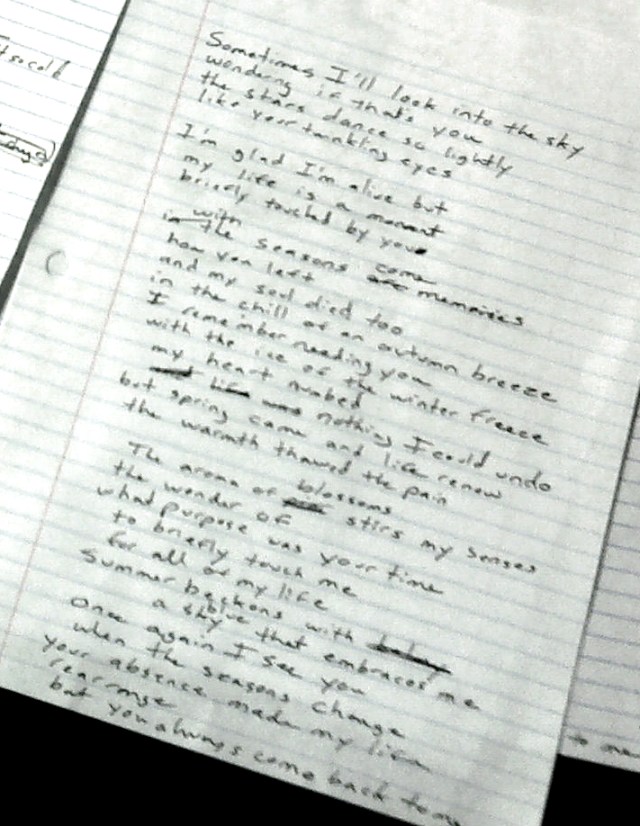 Sometimes I'll look into the sky
wondering if that's you
the stars dance so lightly
like your twinkling eyes
I'm glad I'm alive but
my life is a moment
briefly touched by you
with
in the seasons come memories
how you left
and my soul died too
in the chill of an autumn breeze
I remember needing you
with the ice of the winter freeze
my heart numbed
life was nothing I could undo
but spring came and life renew
the warmth thawed the pain
The aroma of blossoms
the wonder of stirs my senses
what purpose was your time
to briefly touch me
for all of my life
Summer beckons with
a skyve that embraces me
Once again I see you
when the seasons change
your absence made my life
rearrange
but you always come back to me
to me